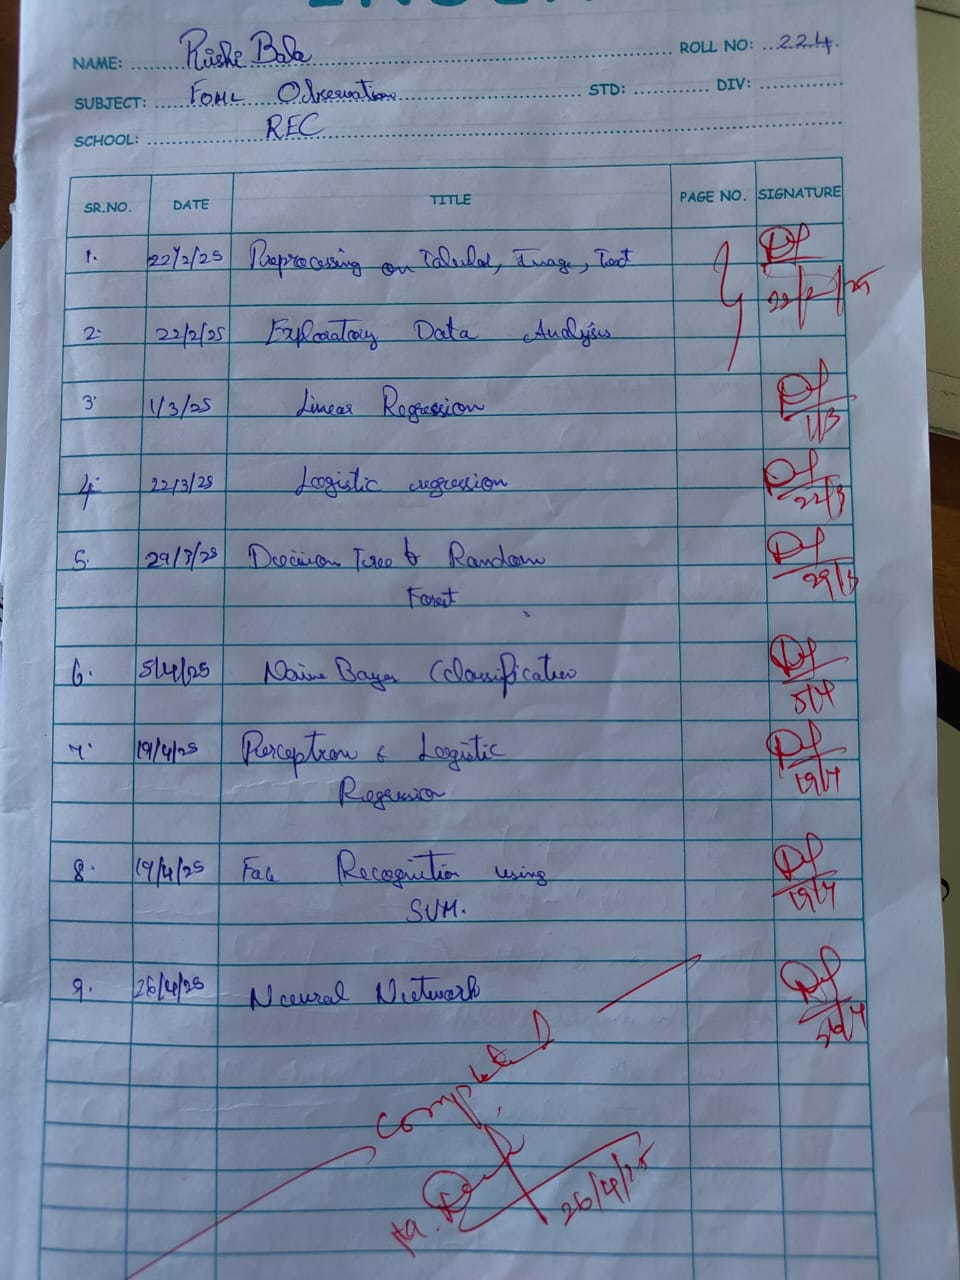 NAME: Rishi Bala ROLL NO: 224.
SUBJECT: FOML Observation STD: DIV:
SCHOOL: REC
SR.NO. DATE TITLE PAGE NO. SIGNATURE
1. 22/2/25 Preprocessing on Tabular, Image, Text
22/2/25
2. 22/2/25 Exploratory Data Analysis
3. 1/3/25 Linear Regression
1/3
4. 22/3/25 Logistic regression
22/3
5. 29/3/25 Decision Tree & Random
Forest 29/3
6. 5/4/25 Naive Bayes Classification
5/4
7. 19/4/25 Perceptron & Logistic
Regression 19/4
8. 19/4/25 Face Recognition using
SVM. 19/4
9. 26/4/25 Neural Network
26/4
Completed
26/4/25